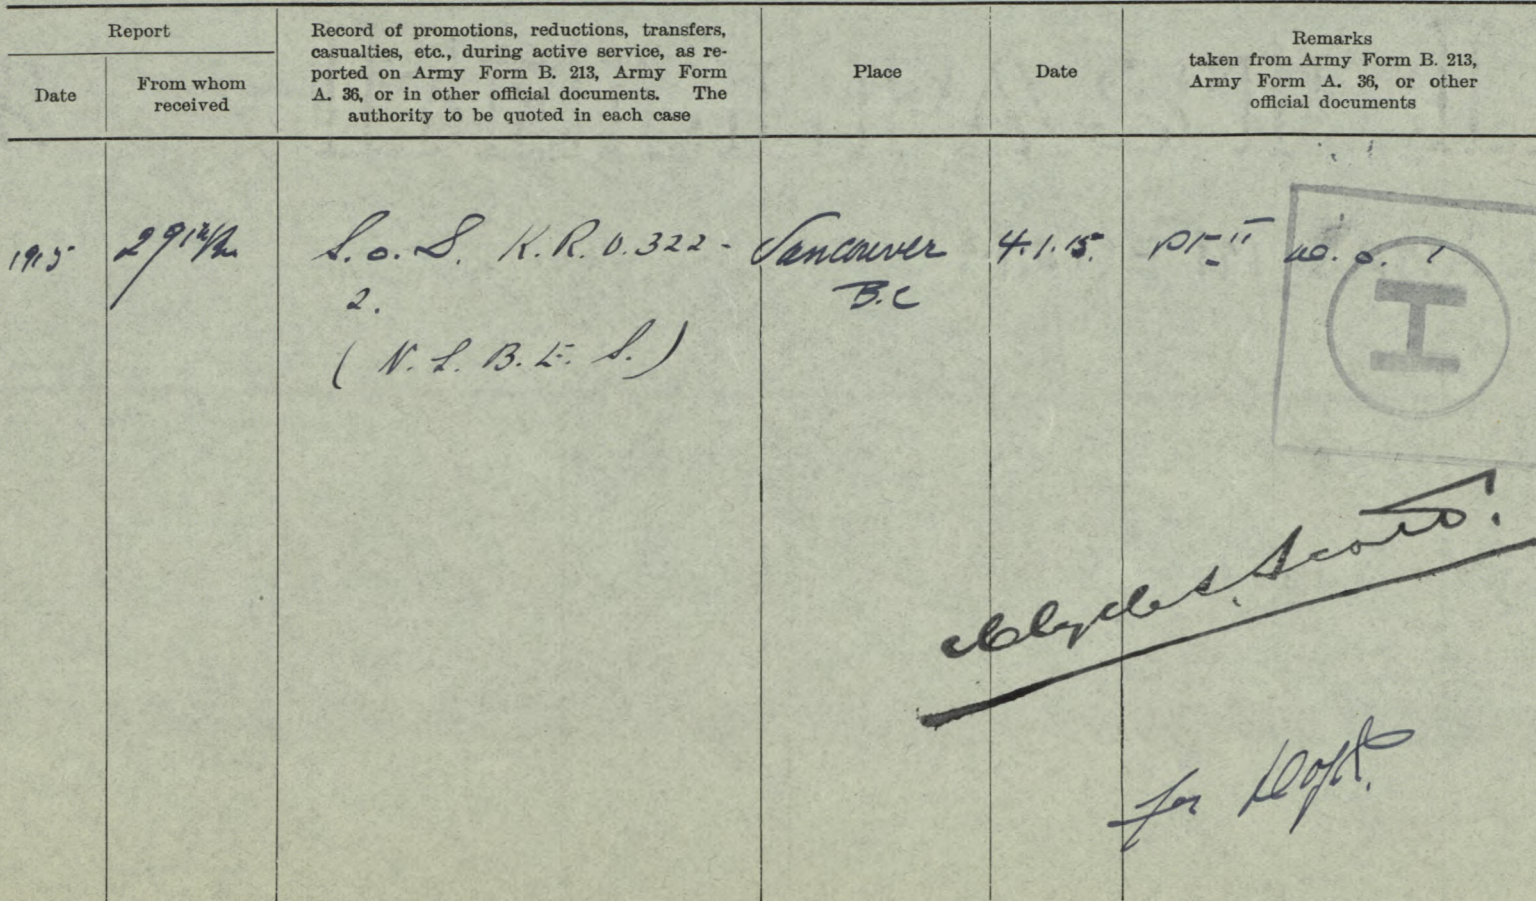 Report
Date
From whom
received
Record of promotions, reductions, transfers,
casualties, etc., during active service, as re-
ported on Army Form B. 213, Army Form
A. 36, or in other official documents. The
authority to be quoted in each case
Place
Date
Remarks
taken from Army Form B. 213,
Army Form A. 36, or other
official documents
1915
S.O.S. K.R.O. 322-
2.
(N.L.B.E.S.)
Vancouver
B.C
4.1.15.
Pt II D.O. 1
H
Clyde S. Scott.
for